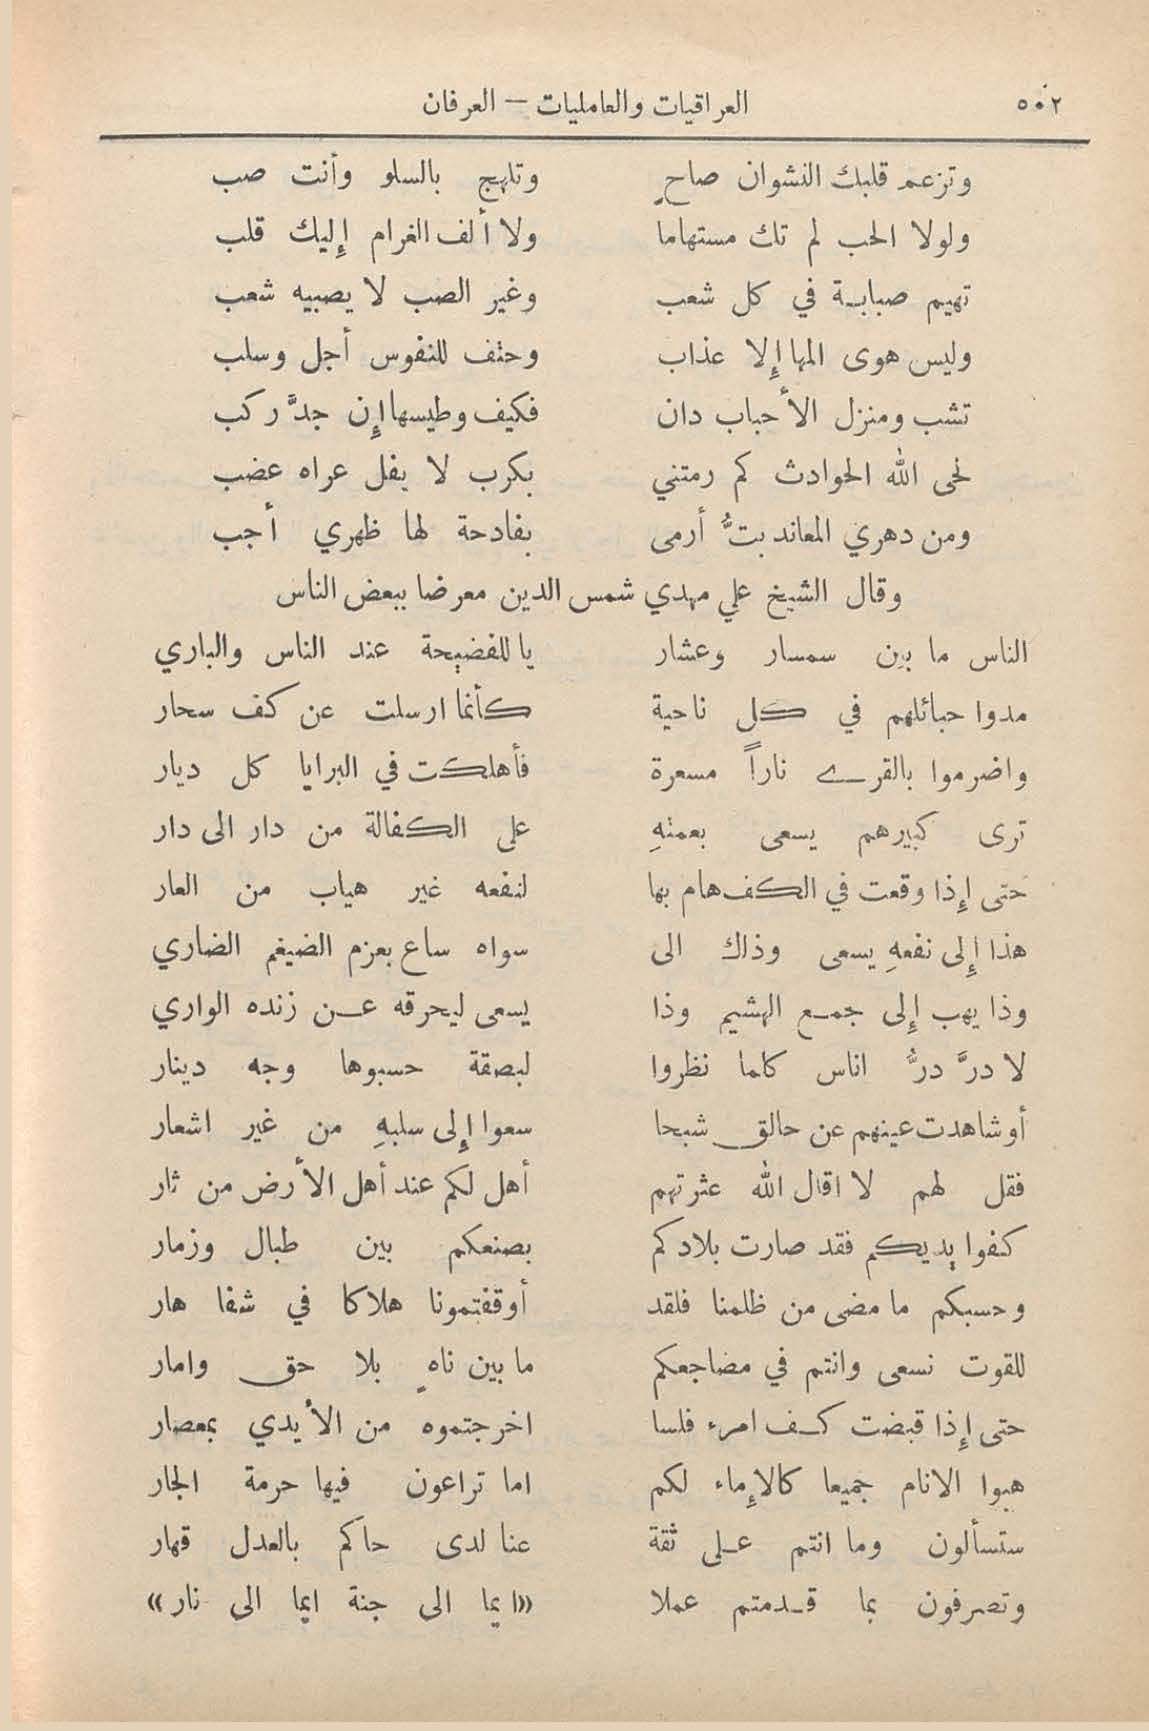 ٥٠٢ العراقيات والعامليات — العرفان
وتزعم قلبك النشوان صاحٍ وتلهج بالسلو وأنت صب
ولولا الحب لم تك مستهاما ولا ألف الغرام إليك قلب
تهيم صبابة في كل شعب وغير الصب لا يصبيه شعب
وليس هوى المها إلا عذاب وحتف للنفوس أجل وسلب
تشب ومنزل الأحباب دان فكيف وطيسها إن جدَّ ركب
لحى الله الحوادث كم رمتني بكرب لا يفل عراه عضب
ومن دهري المعاند بتُّ أرمى بفادحة لها ظهري أجب
وقال الشيخ علي مهدي شمس الدين معرضا ببعض الناس
الناس ما بين سمسار وعشار يا للفضيحة عند الناس والباري
مدوا حبائلهم في كل ناحية كأنما ارسلت عن كف سحار
واضرموا بالقرى ناراً مسعرة فأهلكت في البرايا كل ديار
ترى كبيرهم يسعى بعمتهِ على الكفالة من دار الى دار
حتى إذا وقعت في الكف هام بها لنفعه غير هياب من العار
هذا إلى نفعهِ يسعى وذاك الى سواه ساع بعزم الضيغم الضاري
وذا يهب إلى جمع الهشيم وذا يسعى ليحرقه عن زنده الواري
لا درَّ درُّ اناس كلما نظروا لبصقة حسبوها وجه دينار
أو شاهدت عينهم عن حالق شبحا سعوا إلى سلبهِ من غير اشعار
فقل لهم لا اقال الله عثرتهم أهل لكم عند أهل الأرض من ثار
كفوا يديكم فقد صارت بلادكم بصنعكم بين طبال وزمار
وحسبكم ما مضى من ظلمنا فلقد أوقفتمونا هلاكا في شفا هار
للقوت نسعى وانتم في مضاجعكم ما بين ناهٍ بلا حق وامار
حتى إذا قبضت كف امرء فلسا اخرجتموه من الأيدي بمعصار
هبوا الانام جميعا كالإماء لكم اما تراعون فيها حرمة الجار
ستسألون وما انتم على ثقة عنا لدى حاكم بالعدل قهار
وتصرفون بما قدمتم عملا «ايما الى جنة ايما الى نار»